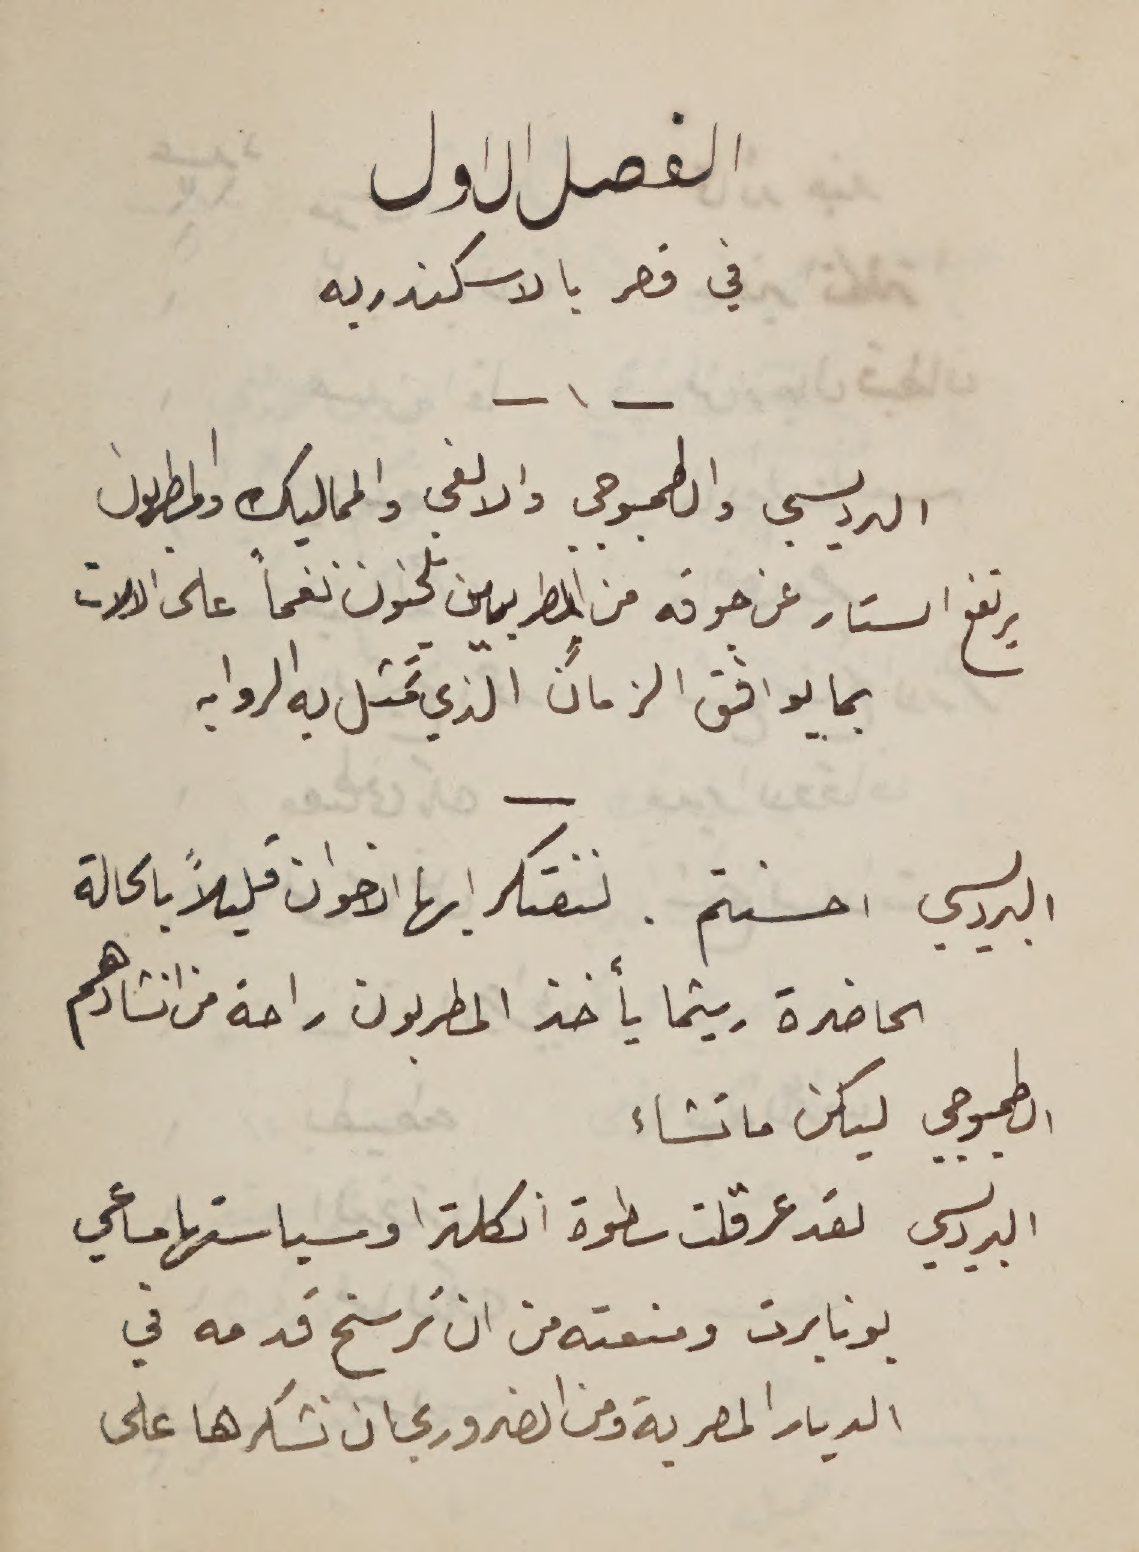 الفصل الاول
في قصر بالاسكندريه
— ١ —
البرديسي والطمبوجي والالفي والمماليك والمطربون
يرتفع الستار عن جوقه من المطربين يلحنون نغماً على الالات
بما يوافق الزمان الذي تمثل به الروايه
—
البرديسي احسنتم . لنفتكر ايها الاخوان قليلاً بالحالة
الحاضرة ريثما يأخذ المطربون راحة من انشادهم
الطمبوجي ليكن ما تشاء
البرديسي لقد عرقلت سطوة انكلترا وسياستها مساعي
بونابرت ومنعته من ان ترسخ قدمه في
الديار المصرية ومن الضروري ان نشكرها على